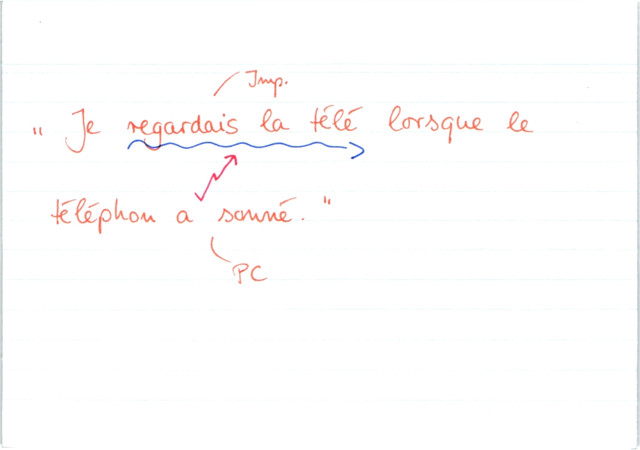 Imp.
" Je regardais la télé lorsque le
téléphon a sonné. "
PC